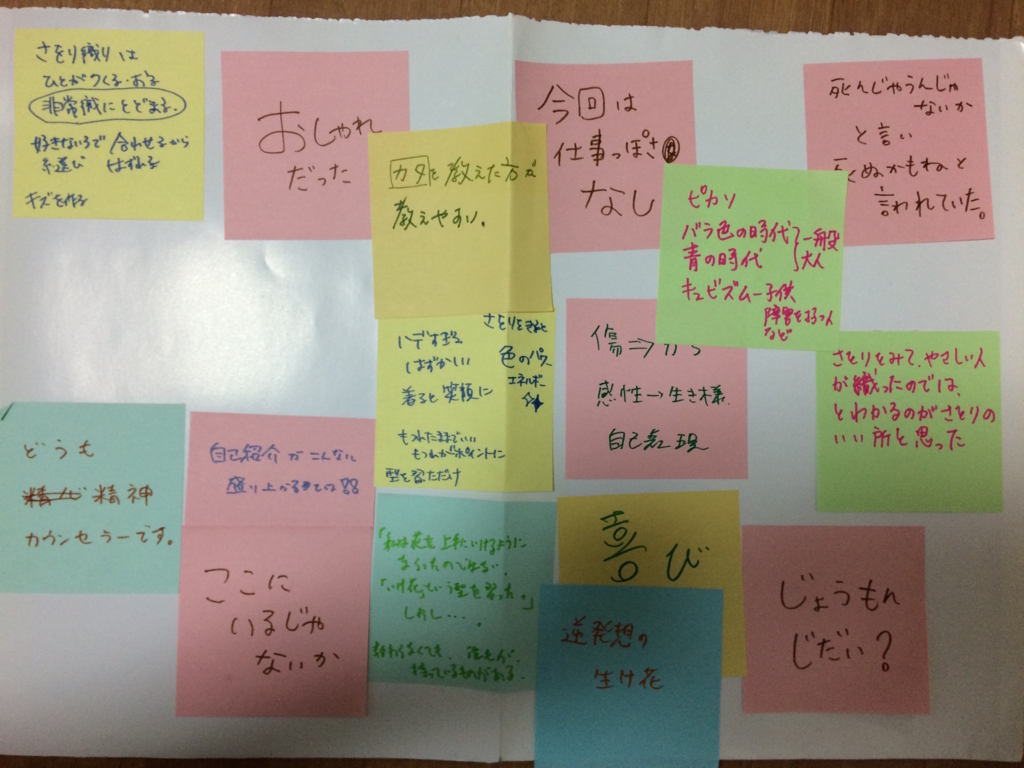 さをり織りは
ひとがつくる・ある
非常識にとどまる。
好きないろで 合わせ子から
糸選び はずれ子
キズを作る
おしゃれ
だった
カタを教えた方が
教えやすい。
今回は
仕事っぽさ
なし
死んじゃうんじゃ
ないか
と言い
死ぬかもねと
言われていた。
ピカソ
バラ色の時代
青の時代
一般
大人
キュビズムー子供
障害をもつ人
など
はずかしい
着ると笑顔に
さをりを
色のパワー
エネルギー
もつれたままでいい
もつれがポイントに
型を習ただけ
傷⇒から
感性→生き様
自己表現
さとりをみて、やさしい人
が織ったのでは、
とわかるのがさとりの
いい所と思った
どうも
精神
カウンセラーです。
自己紹介がこんなに
盛り上がるとは
ここに
いるじゃ
ないか
「私は花を上手にいけるように
なったのではない。
「いけ花」という型を習った。」
しかし…。
持っているものがある。
喜び
逆発想の
生け花
じょうもん
じだい?